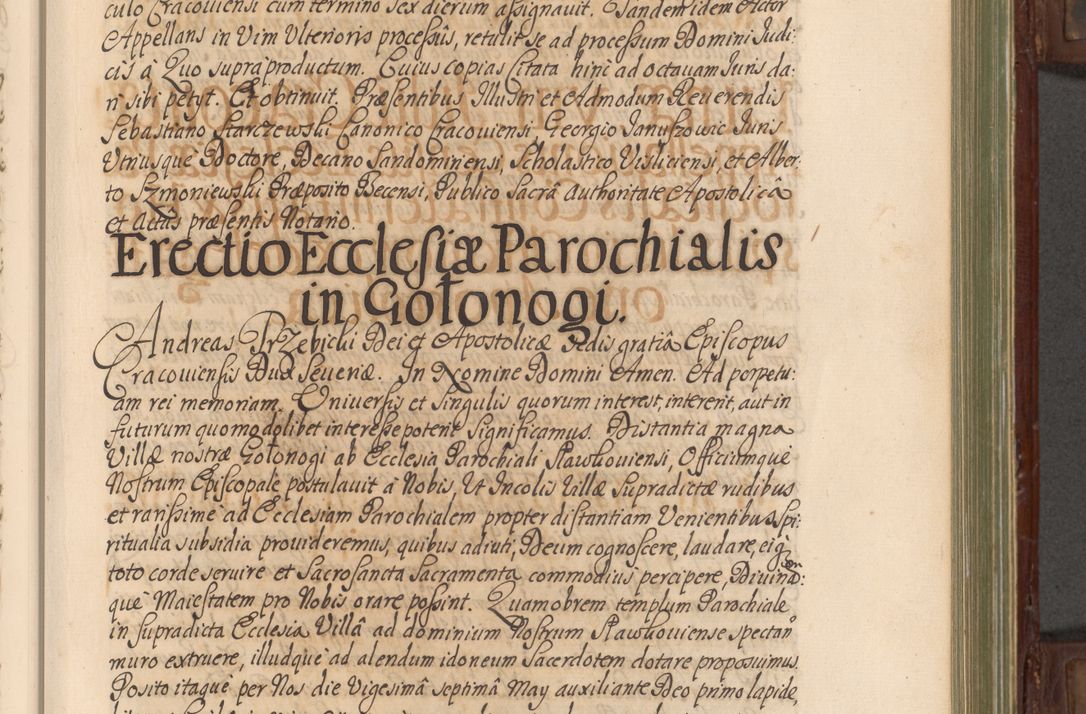 culo Cracoviensi cum termino sex dierum assignavit. Tandem idem Actor
Appellans in Vim Ulterioris processus, retulit se ad processum Domini Judi:
cis à Quo supra productum. Cuius copias Citata hinc ad octavam Juris da:
ri sibi petyt. Et obtinuit. Præsentibus Illustri et Admodum Reverendis
Sebastiano Starczewski Canonico Cracoviensi, Georgio Januszowic Juris
Utriusque Doctore, Decano Sandominensi, Scholastico Visliciensi, et Alber:
to Szmoniewski Præposito Becensi, Publico Sacrâ Authoritate Apostolicâ
et Actûs præsentis Notario.
Erectio Ecclesiæ Parochialis
in Gołonogi.
Andreas Przebicki Dei et Apostolicæ Sedis gratiâ Episcopus
Cracoviensis Dux Severiæ. In Nomine Domini Amen. Ad perpetu:
am rei memoriam. Universis et Singulis quorum interest, intererit, aut in
futurum quomodolibet interesse poterit Significamus. Distantia magna
Villæ nostræ Gołonogi ab Ecclesia Parochiali Sławkoviensi, Officiumque
Nostrum Episcopale postulavit à Nobis, Ut Incolis Villæ Supradictæ rudibus
et rarissime ad Ecclesiam Parochialem propter distantiam Venientibus, Spi:
ritualia subsidia provideremus, quibus adiuti, Deum cognoscere, laudare, eiq
toto corde servire et Sacrosancta Sacramenta commodius percipere, Divinam:
què Maiestatem pro Nobis orare possint. Quamobrem templum Parochiale
in supradicta Ecclesia Villâ ad dominium Nostrum Sławkoviense spectan
muro extruere, illudquè ad alendum idoneum Sacerdotem dotare proposuimus.
Posito itaquè per Nos die Vigesimâ septimâ May auxiliante Deo primo lapide,